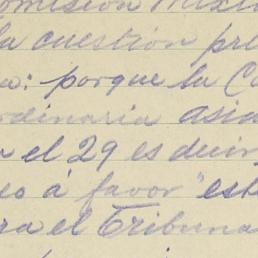 omisión Mixta
la cuestión pre
a: porque la Co
rdinaria asis
n el 29 es decir
eo á favor "est
ra el Tribuna